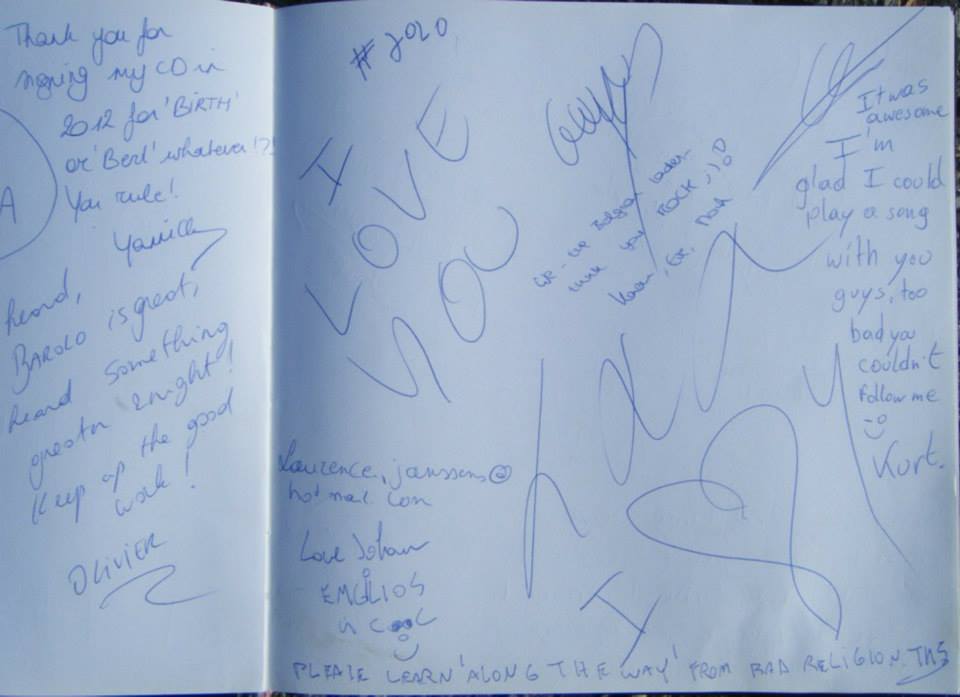 Thank you for
signing my CD in
2012 for 'BIRTH'
or 'Bert' whatever!?!
You rule!
A
Heard,
BAROLO is great,
heard something
greater 2night!
Keep up the good
work!
OLIVIER
#YOLO
I
LOVE
YOU
We the Belgian
think you ROCK
It was
awesome
I'm
glad I could
play a song
with you
guys, too
bad you
couldn't
follow me
Kurt.
Laurence.janssens@
hotmail.com
Love Johan
EMILIOS
is COOL
I
PLEASE LEARN 'ALONG THE WAY' FROM BAD RELIGION.